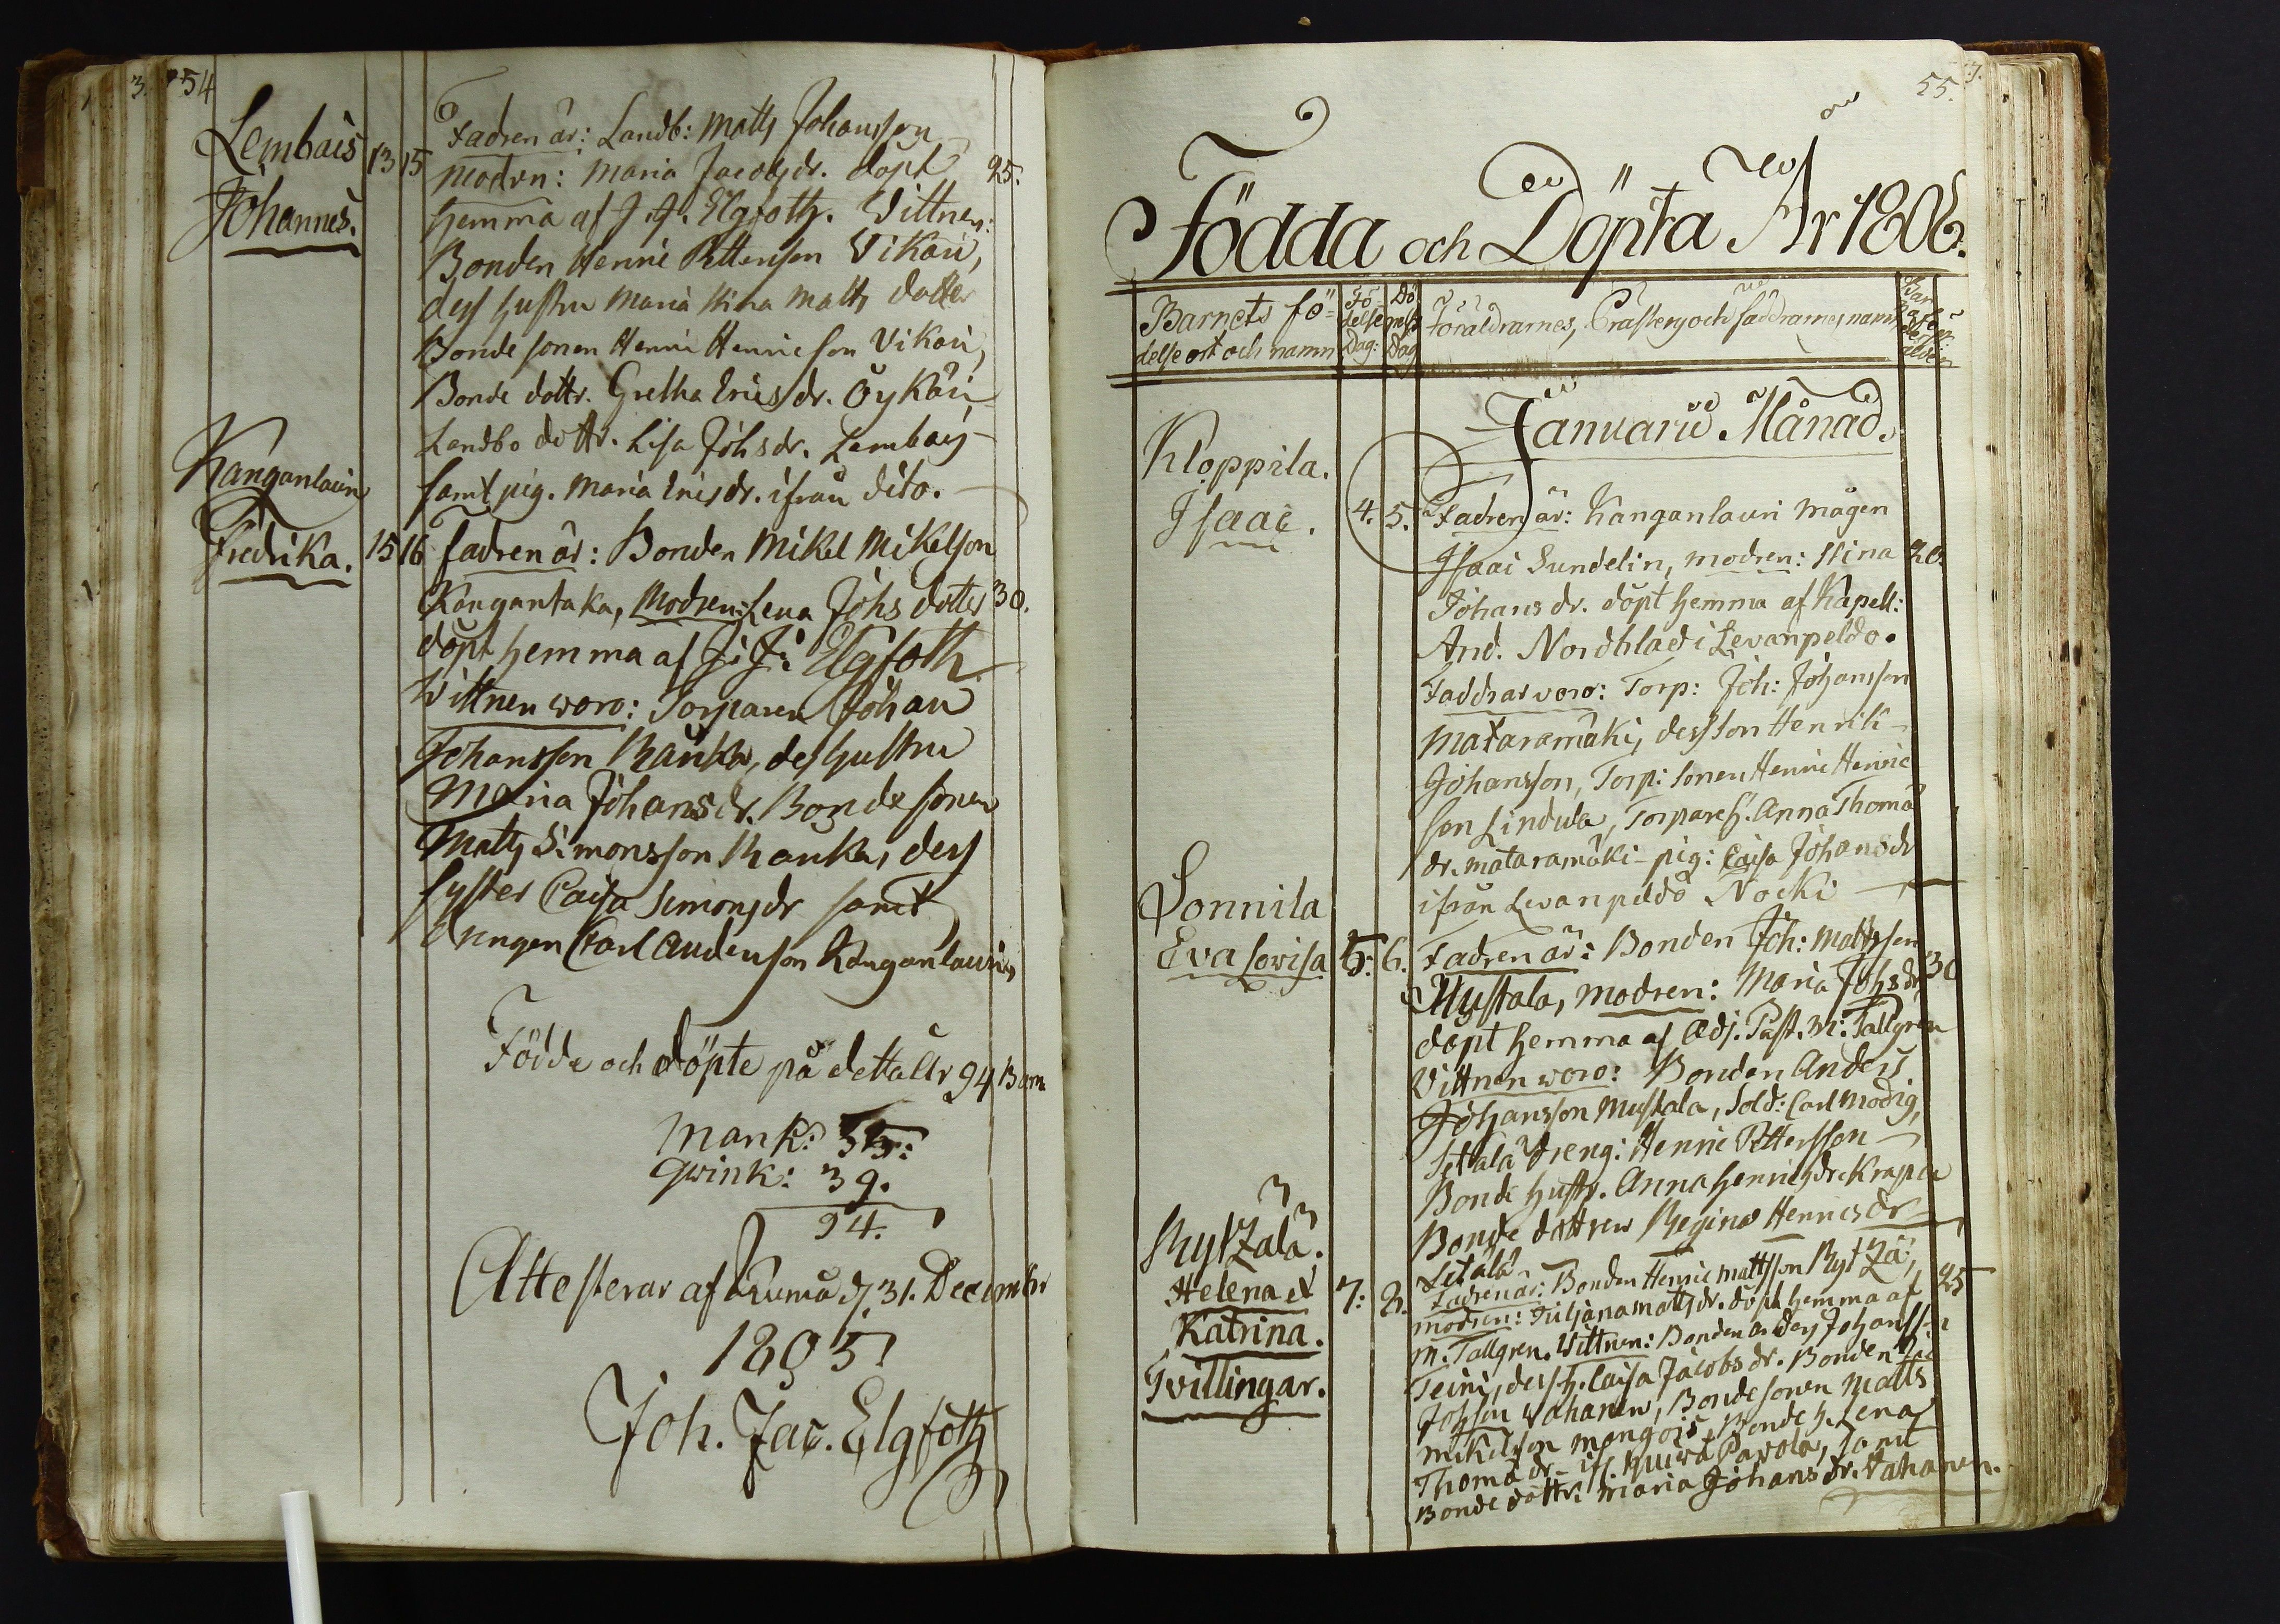 54
Lembais
Johannes.
13 15
Fadren är: Landb: Matts Johansson
modren: Maria Jacobsdr. döpt 25.
hemma af J. J. Elgfoth. Vittnen:
Bonden Henric Pettersson Vikari,
dess hustru Maria Stina Matts dotter
Bonde sonen Henric Henricson Vikari,
Bonde dottr. Gretha Ericsdr. Öykäri,
Landbo dottr. Lisa Johsdr. Lembais
samt pig. Maria Ericsdr. ifrån dito.
Kanganlauri
Fredrika.
15 16 fadren är: Bonden Mikel Mikelson
Kangantaka, Modren: Lena Johs dotter 30.
döpt hemma af J: J: Elgfoth
Wittnen woro: Torparen Johan
Johansson Ranka, des hustru
Maria Johansdr. Bonde sonen
Matts Simonsson Ranka, dess
syster Caisa Simonsdr samt
drengen Carl Andersson Kanganlauri
Födde och döpte på detta år 94 Barn
Mank: 55:
Qwink: 39.
94.
Attesterar af Kumå d. 31. Decembr
1805
Joh. Jac. Elgfoth
55.
Födda och Döpta År 1806.
Barnets fö=
delse ort och namn
Fö
delse
Dag:
Dö
pelse
Dag
Föräldrarnes, Prästens och faddrarnes namn
Januarii Månad.
Kloppila.
Isaac.
4. 5. Fadren är: Kanganlauri mågen
Isaac Sundelin, modren: Stina 20.
Johansdr. döpt hemma af Kapell:
And. Nordblad i Levanpeldo.
Faddrar voro: Torp: Joh: Johansson
Mataramäki, dess son Henrik
Johansson, Torp: sonen Henric Henric
son Lindula, Torpares h. Anna Thomä
dr. mataramäki pig: Caisa Johansdr
ifrån Levanpeldo Nocki
Sonnila
Eva Lovisa
5. 6. Fadren är: Bonden Joh: Mattsson
Mustala, modren: Maria Johsdr 30
döpt hemma af Adj. Past. M: Tallgren
Vittnen woro: Bonden Anders
Johansson Mustala, Sold: Carl Modig,
Setälä dreng: Henric Pettersson
Bonde hustr. Anna Henricsdr. Krapu
Bonde dottren Regina Henricsdr
Setälä
Rytzälä.
Helena et
Katrina.
Tvillingar.
7: 8. Fadren är: Bonden Henric Mattsson Rytzä, 25
modren: Juliana Mattsdr. döpt hemma af
M. Tallgren. Vittnen: Bonden Anders Johansson
Teini, dess h. Caisa Jacobsdr. Bonden
Johsson Vahanen, Bonde sonen Matts
Mikelson Mangois Bonde h. Lena
Thomädr. Pavola, samt
Bonde dottr: Maria Johansdr. Vahanen.